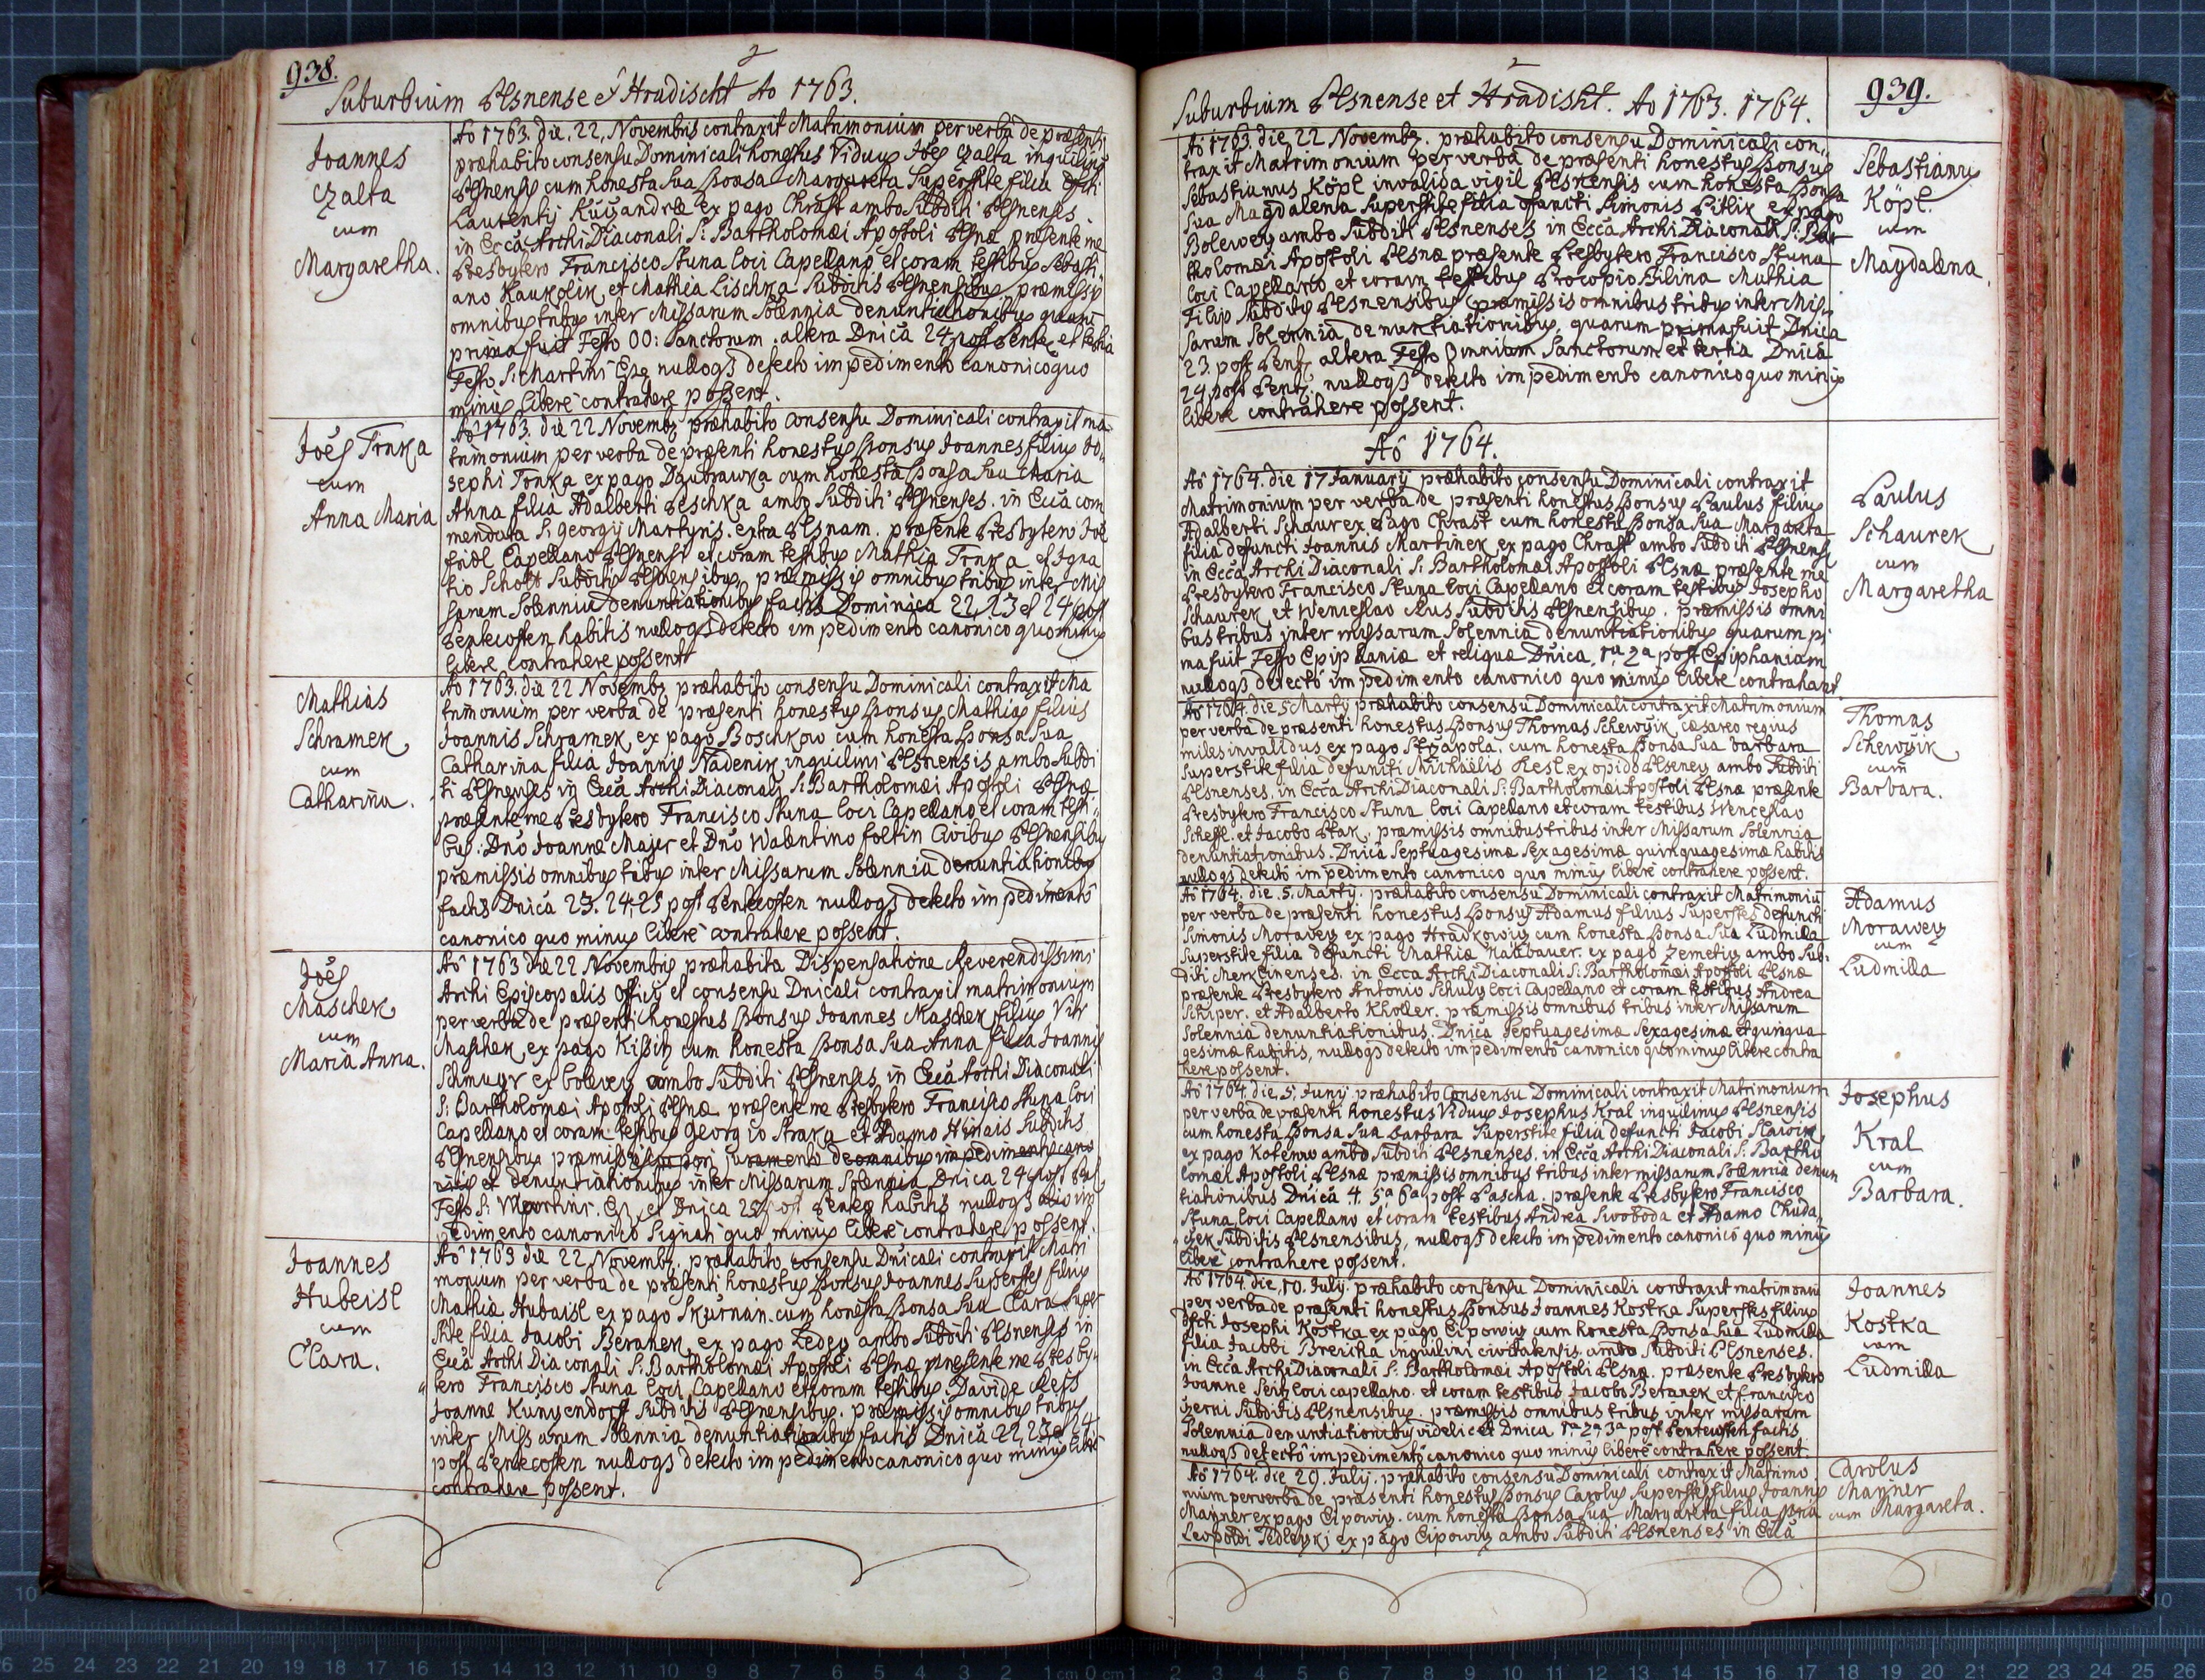 938.
2
Suburbium Plsnense & Hradischt Ao 1763.
Joannes
Czalta
cum
Margaretha.
Ao 1763. die. 22. Novembris contraxit Matrimonium per verba de præsenti
præhabito consensu Dominicali honestus Viduus Joēs Czalta inquilinus
Plsnensis cum honesta Sua Sponsa Margareta Superstite filia dfcti
Laurentij ex pago Chrast ambo Subditi Plsnenses
in Eccā Archi Diaconali S: Bartholomæi Apostoli Plsnæ præsente me
Presbytero Francisco Stuna loci Capellano et coram testibus Sebasti
ano Kaukolik et Mathia Lischka Subditis Plsnensibus præmissis
omnibus tribus inter Missarum Solennia denuntiationibus quarū
prima fuit Festo OO: Sanctorum. altera Dnicā 24 post Pente et tertia
Festo S: Martini Epi nulloqꝫ detecto impedimento canonico quo
minus libere contrahere possent.
Joēs Trnka
cum
Anna Maria
Ao 1763. die 22 Novembꝫ præhabito consensu Dominicali contraxit ma-
trimonium per verba de præsenti honestus Sponsus Joannes filius Jo-
sephi Trnka ex pago Daubrawka cum honesta Sponsa Sua Maria
Anna filia Adalberti Peschka ambo Subditi Plsnenses. in Eccā com
mendata S: Georgij Martyris. extra Plsnam. præsente Presbytero Joē
Fridl Capellano Plsnensi et coram testibus Mathia Trnka et Igna
tio Scholtz Subditis Plsnensibus, præmissis omnibus tribus inter Mis
sarum Solennia denuntiationibus factis Dominica 22, 23 et 24 post
Pentecosten habitis nulloqꝫ detecto impedimento canonico quominus
libere contrahere possent
Mathias
Schramek
cum
Catharina.
Ao 1763. die 22 Novembꝫ præhabito consensu Dominicali contraxit Ma
trimonium per verba de præsenti honestus Sponsus Mathias filius
Joannis Schramek ex pago Boschkow cum honesta Sponsa Sua
Catharina filia Joannis Nadenik inquilini Plsnensis ambo Subdi
ti Plsnenses in Eccā Archi Diaconali S: Bartholomæi Apostoli Plsnæ
præsente me Presbytero Francisco Stuna loci Capellano et coram testi
bus: Dnō Joanne Majer et Dnō Walentino Foltin Civibus Plsnensibus
præmissis omnibus tribus inter Missarum Solennia denuntiationibus
factis Dnica 23. 24, 25 post Pentecosten nulloqꝫ detecto impedimento
canonico quo minus libere contrahere possent.
Joēs
Maschek
cum
Maria Anna.
Ao 1763 die 22 Novembris præhabita Dispensatione Reverendissimi
Archi Episcopalis Officij et consensu Dnicali contraxit matrimonium
per verba de præsenti honestus Sponsus Joannes Maschek filius Viti
Maschek ex pago Kissitz cum honesta Sponsa Sua Anna filia Joannis
ex Bolevey ambo Subditi Plsnenses in Eccā Archi Diaconali
S: Bartholomæi Apostoli Plsnæ præsente me Presbytero Francisco Stuna loci
Capellano et coram testibus Georgio Straka et Adamo Subditis
Plsnensibus præmisso juramento de omnibus impedimentis cano
nicis et denuntiationibus inter Missarum Solennia Dnica 24 post
Festo S: Martini. et Dnica 25 post Pentec habitis nulloqꝫ alio im
pedimento canonico Signati quo minus libere contrahere possent.
Joannes
Hubeisl
cum
Clara.
Ao 1763 die 22 Novembꝫ. præhabito consensu Dnicali contraxit Matri
monium per verba de præsenti honestus Sponsus Joannes Superstes filius
Mathiæ Hubaisl ex pago Skurnan. cum honesta Sponsa Sua Clara Super
stite filia Jacobi Beranek ex pago Ledey ambo Subditi Plsnenses in
Eccā Archi Diaconali S: Bartholomæi Apostoli Plsnæ præsente me Presby-
tero Francisco Stuna loci Capellano et coram testibus Davide
Joanne Kunzendorf Subditis Plsnensibus. præmissis omnibus tribus
inter Missarum Solennia denuntiationibus factis Dnica 22, 23 et 24
post Pentecosten nulloqꝫ detecto impedimento canonico quo minus libere
contrahere possent.
2
Suburbium Plsnense et Hradisht. Ao 1763. 1764.
939.
Ao 1763. die 22 Novembꝫ. præhabito consensu Dominicali con-
traxit Matrimonium per verba de præsenti honestus Sponsus
Sebastianus Köpl invalida vigil Plsnensis cum honesta Sponsa
Sua Magdalena Superstite filia defuncti Simonis Pitlik ex pago
Bolewey ambo Subditi Plsnenses in Eccā Archi Diaconali S: Bar
tholomæi Apostoli Plsnæ præsente Presbytero Francisco Stuna
loci Capellano et coram testibus Procopio Bilina Mathia
Filip Subditis Plsnensibus præmissis omnibus tribus inter Mis-
sarum Solennia denuntiationibus, quarum prima fuit Dnica
23. post Pent, altera Festo Omnium Sanctorum et tertia Dnica
24 post Pent. nulloqꝫ detecto impedimento canonico quo minus
libere contrahere possent.
Sebastianus
Köpl
cum
Magdalena
Ao 1764.
Ao 1764. die 17 January præhabito consensu Dominicali contraxit
Matrimonium per verba de præsenti honestus Sponsus Paulus filius
Adalberti Schaurex Pago Chrast cum honesta Sponsa Sua Margareta
filia defuncti Joannis Martinek ex pago Chrast ambo Subditi Plsnens
in Ecca Archi Diaconali S: Bartholomæi Apostoli Plsnæ præsente me
Presbytero Francisco Stuna loci Capellano et coram testibus Josepho
Schaurek et Wenceslao Rus Subditis Plsnensibus. præmissis omni
bus tribus inter missarum Solennia denuntiationibus quarum pi
ma fuit Festo Epiphaniæ et reliquæ Dnica, 1a, 2a post Epiphaniam
nulloqꝫ detecto impedimento canonico quo minus libere contrahant
Paulus
Schaurek
cum
Margaretha
Ao 1764. die 5 Martij præhabito consensu Dominicali contraxit Matrimonium
per verba de præsenti honestus Sponsus Thomas Schewcžik cæsareo regius
miles invalidus ex pago Strzapola. cum honesta Sponsa Sua Barbara
Superstite filia defuncti Michaelis Kesl. ex opido Plseney ambo Subditi
Plsnenses. in Ecca Archi Diaconali S: Bartholomæi Apostoli Plsnæ præsente
Presbytero Francisco Stuna loci Capellano et coram testibus Wenceslao
Scheffl. et Jacobo Ptak. præmissis omnibus tribus inter Missarum Solennia
denuntiationibus. Dnica Septuagesimæ Sexagesimæ quinquagesimæ habitis
nulloqꝫ detecto impedimento canonico quo minus libere contrahere possent.
Thomas
Schewcžik
cum
Barbara.
Ao 1764. die. 5. Martij. præhabito consensu Dominicali contraxit Matrimoniū
per verba de præsenti honestus Sponsus Adamus filius Superstes defuncti
Simonis Moravey ex pago Hradkowitz cum honesta Sponsa Sua Ludmilla
Superstite filia defuncti Mathiæ Naübauer. ex pago Zemetitz ambo Sub-
diti Merklinenses. in Ecca Archi Diaconali S: Bartholomæi Apostoli Plsnæ
præsente Presbytero Antonio Schulz loci Capellano et coram testibus Andrea
Schiper. et Adalberto Kholler. præmissis omnibus tribus inter Missarum
Solennia denuntiationibus. Dnica Septuagesimæ Sexagesimæ et quinqua
gesimæ habitis, nulloqꝫ detecto impedimento canonico quominus libere contra
here possent.
Adamus
Morawey
cum
Ludmilla
Ao 1764. die. 5. Junij præhabito Consensu Dominicali contraxit Matrimonium
per verba de præsenti honestus Viduus Josephus Kral inquilinus Plsnensis
cum honesta Sponsa Sua Barbara Superstite filia defuncti Jacobi Slawik
ex pago Koterow ambo Subditi Plsnenses. in Ecca Archi Diaconali S: Bartho
lomæi Apostoli Plsnæ præmissis omnibus tribus inter missarum Solennia denun
tiationibus Dnica 4. 5a 6a post Pascha. præsente Presbytero Francisco
Stuna loci Capellano et coram testibus Andrea Swoboda et Adamo Chuda-
czek Subditis Plsnensibus, nulloqꝫ detecto impedimento canonico quo minus
libere contrahere possent.
Josephus
Kral
cum
Barbara.
Ao 1764. die, 10. July. præhabito consensu Dominicali contraxit matrimoniū
per verba de præsenti honestus Sponsus Joannes Kostka Superstes filius
dfcti Josephi Kostka ex pago Cipowitz cum honesta Sponsa Sua Ludmilla
filia Jacobi Breicha inquilini civitatensis ambo Subditi Plsnenses.
in Ecca Archi Diaconali S: Bartholomæi Apostoli Plsnæ. præsente Presbytero
Joanne Seitz loci capellano. et coram testibus Jacobo Beranek et Francisco
Czerni Subditis Plsnensibus. præmissis omnibus tribus inter missarum
Solennia denuntiationibus videlicet Dnica 1a 2a 3a post Pentecosten factis
nulloqꝫ detecto impedimento canonico quo minus libere contrahere possent
Joannes
Kostka
cum
Ludmilla
Ao 1764. die 29. Julij. præhabito consensu Dominicali contraxit Matrimo
nium per verba de præsenti honestus Sponsus Carolus Superstes filius Joannis
Mayner ex pago Cipowitz. cum honesta Sponsa Sua Margareta filia
Leopoldi ex pago Cipowitz ambo Subditi Plsnenses in Ecca
Carolus
Mayner
cum Margareta.